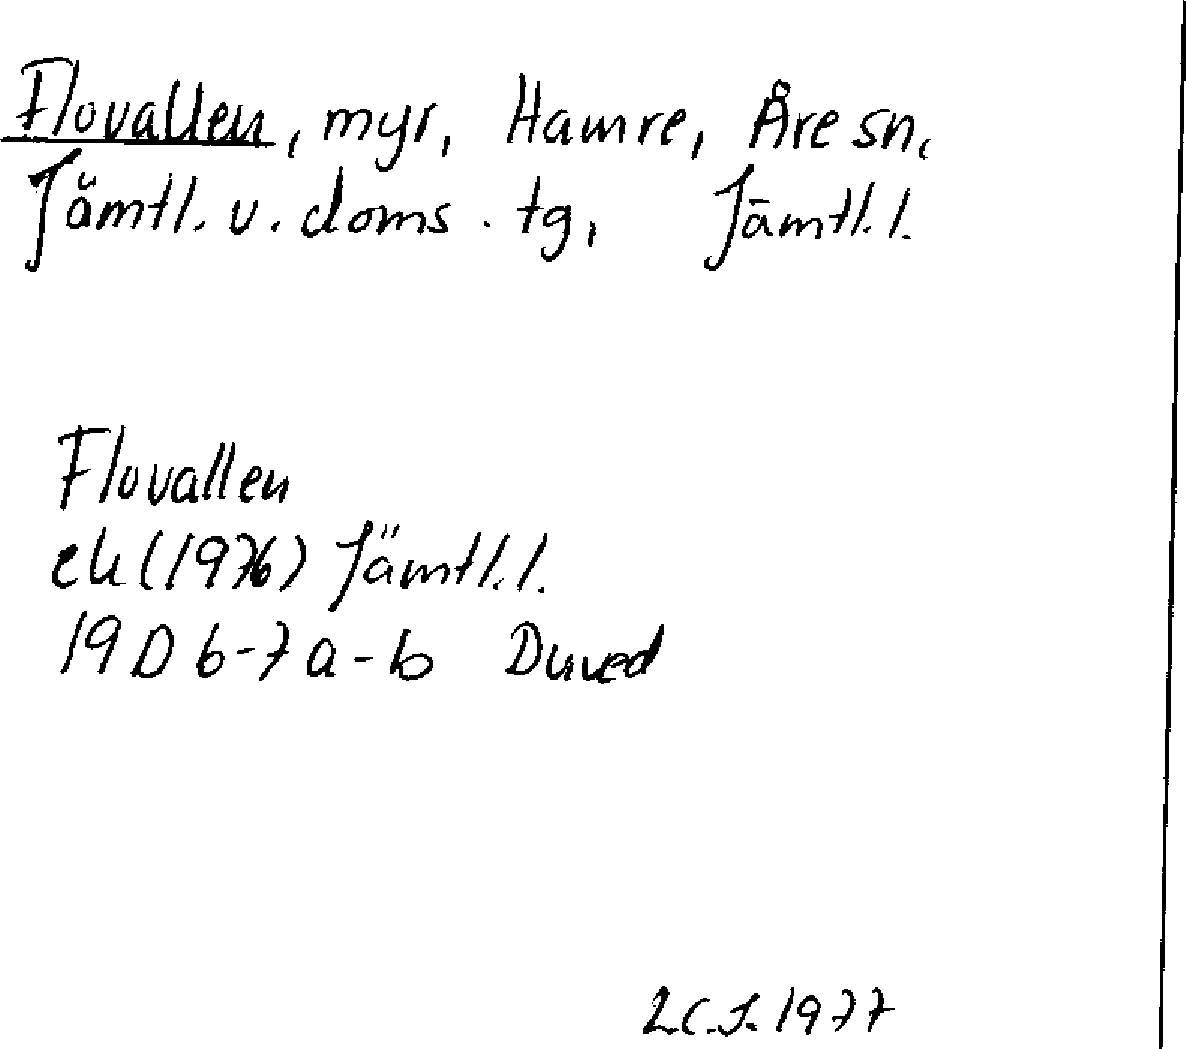 Flovallen, myr, Hamre, Åre sn,
Jämtl. v. doms. tg, Jämtl. l.
Flovallen
ek (1976) Jämtl. l.
19 D 6-7 a-b Duved
1977